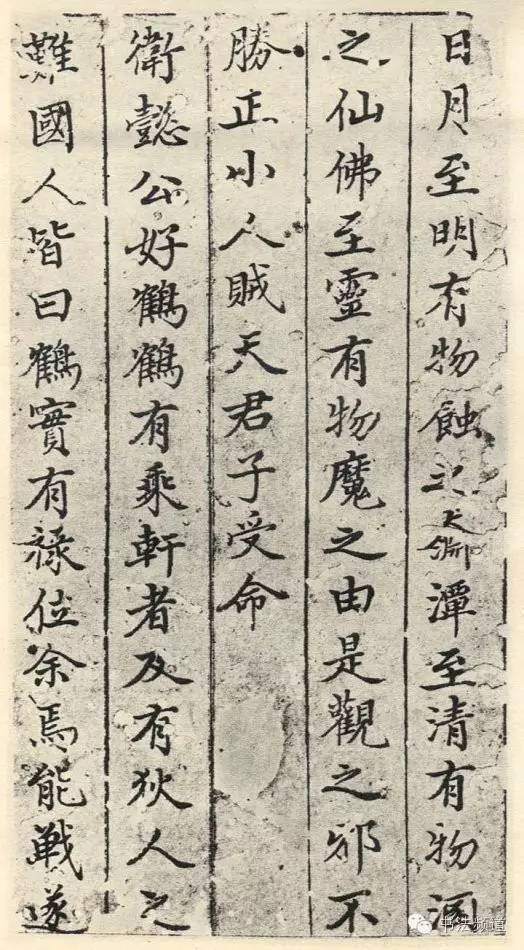 日月至明有物蝕之淵潭至清有物涸
之仙佛至靈有物魔之由是觀之邪不
勝正小人賊天君子受命
衛懿公好鶴鶴有乘軒者及有狄人之
難國人皆曰鶴實有祿位余焉能戰遂
书法频道